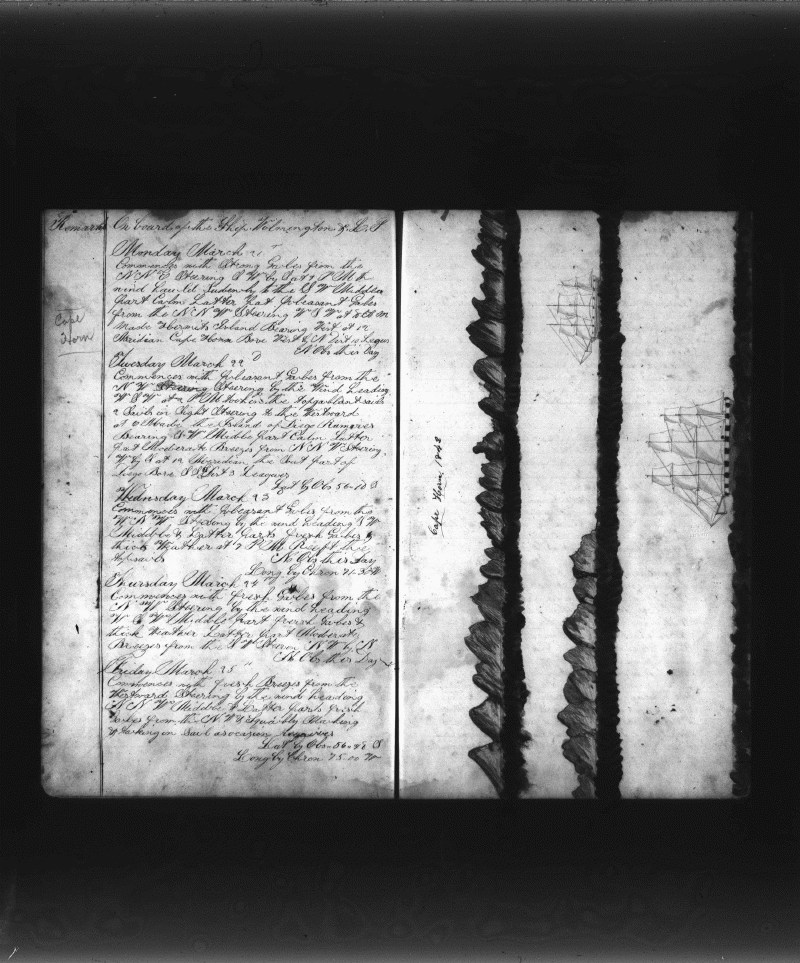 Remarks On board of the Ship Wilmington & L. I
Monday March 21
Commences with Strong Gales from the
N N E Steering S W by S at 9 P M the
wind hauled Suddenly to the S W Middle
part Calm Latter Part Pleasant Gales
from the N N W Steering W S W at 10 A M
Made Hermits Island Bearing West at 12
Meridian Cape Horn Bore West N dist 10 Leagues
N Obs this Day
Cape
Horn
Tuesday March 22
Commences with Pleasant Gales from the
N W Steering by the Wind Heading
W S W at 2 P M the topgallant sails
a Sail in Sight Steering to the Westward
at 6 Made the Island of Diego Ramires
Bearing S W Middle part Calm Latter
part Moderate Breezes from N N W Steering
W by S at 12 Meridian the part of
Diego Bore S S dist 3 Leagues
Lat by Obs 56-18 S
Wednsday March 23
Commences with Pleasant Gales from the
W N W Steering by the wind heading S W
Middle & Latter parts fresh Gales &
thick Weather at 7 P M Reeft the
topsails No Obs this Day
Long by Chron 71-30 W
Thursday March 24
Commences with fresh Gales from the
N W Steering by the wind heading
W S W Middle part fresh Gales &
thick Weather Latter part Moderate
Breezes from the S W Steering N W by N
No Obs this Day
Friday March 25
Commences with fresh Breezes from the
Westward Steering by the wind heading
N N W Middle & Latter parts fresh
Gales from the N W & Squally Making
& Taking in Sail as ocasion requires
Lat by Obs 56-48 S
Long by Chron 75-00 W
Cape Horn 1842